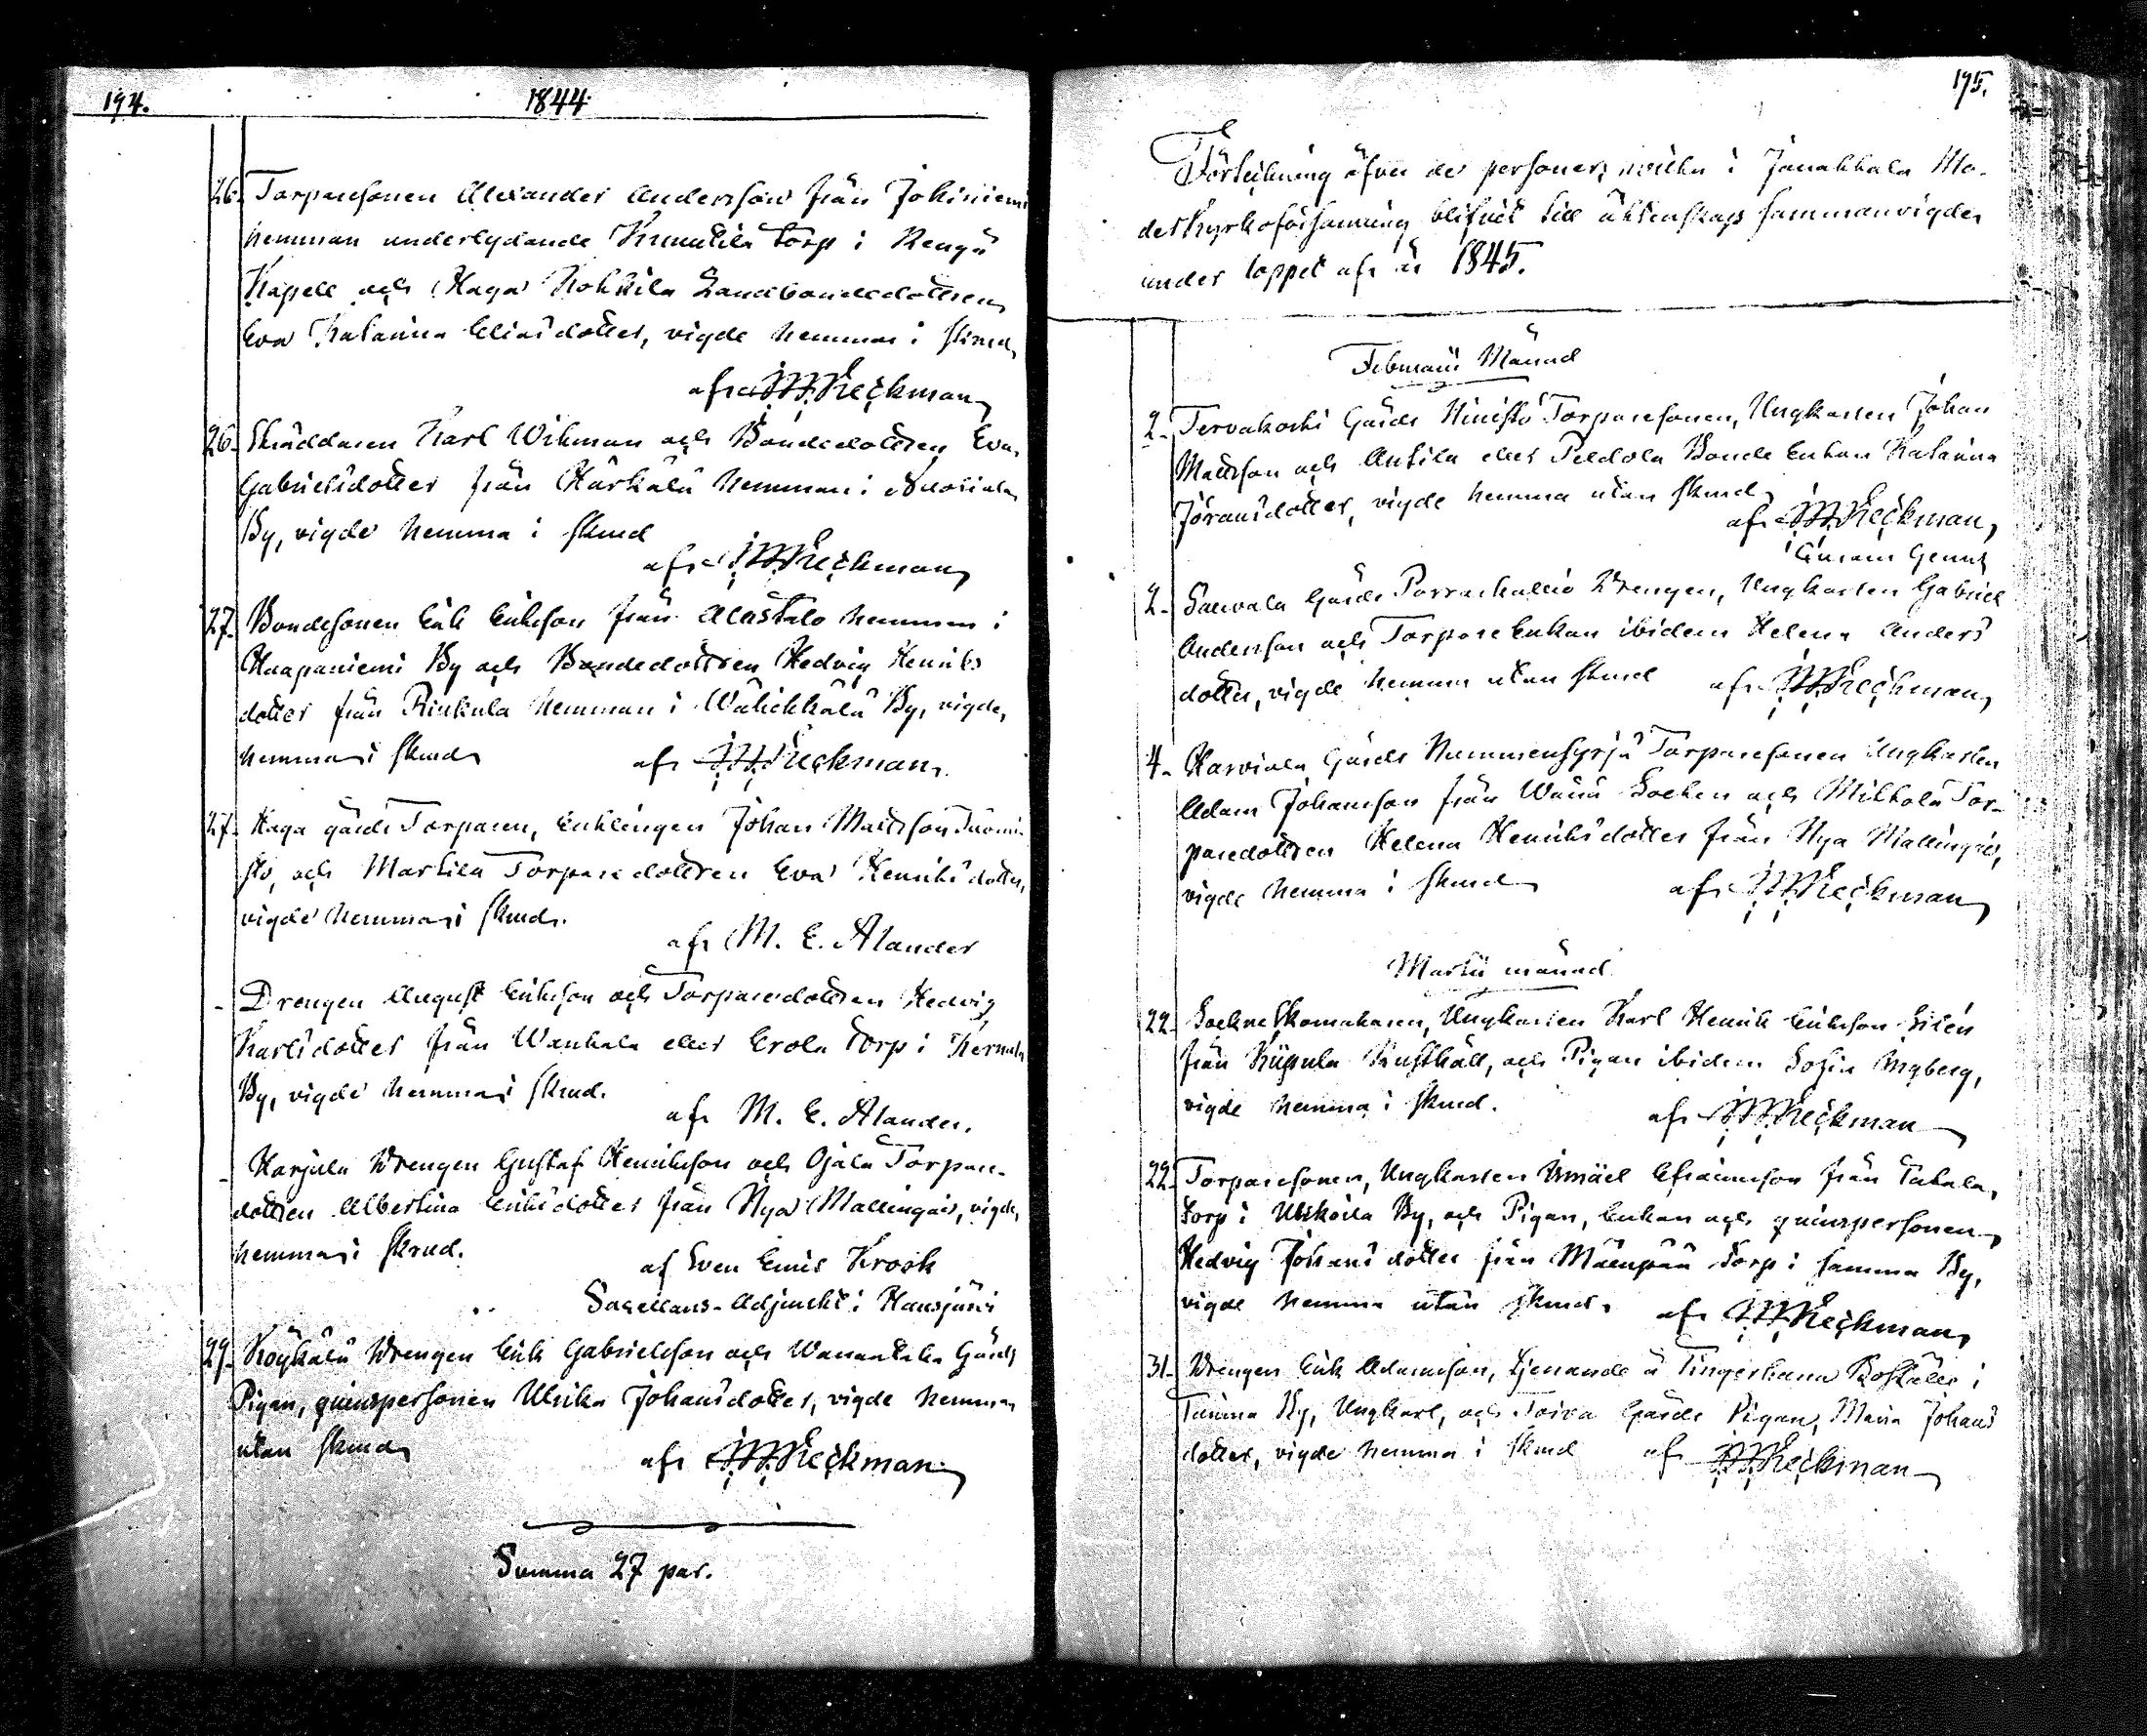 194.
1844.
26. Torparesonen Alexander Andersson från Johiniemi
hemman underlydande Knuutila torp i Rengo
Kapell och Haga Kohkila Landbondedottren
Eva Katarina Eliasdotter, vigde hemma i skrud
af Reckman
26. Skräddaren Karl Wikman och Bondedottren Eva
Gabrielsdotter från Härkälä hemman i
By, vigde hemma i skrud
af Reckman
27. Bondesonen Erik Erikson från Alastalo hemman i
Haapaniemi By och Bondedottren Hedvig Henriks
dotter från Rinkula hemman i Wähikkälä By, vigde
hemma i skrud
af Reckman
27. Haga gårds Torparen, Enklingen Johan Mattsson Tuomi-
sto, och Markila Torparedottren Eva Henriksdotter,
vigde hemma i skrud.
af M. E. Alander
- Drengen August Erikson och Torparedottren Hedvig
Karlsdotter från Wankala eller Erola torp i Kernala
By, vigde hemma i skrud.
af M. E. Alander.
- Harjula Drengen Gustaf Henrikson och Ojala Torpare-
dottren Albertina Eriksdotter från Nya Mallingais, vigde
hemma i skrud.
af Sven Emil Krook
Sacellans-Adjunkt i Hausjärvi
29. Köykälä Drengen Erik Gabrielsson och Wanantaka Gårds
Pigan, qvinspersonen Ulrika Johansdotter, vigde hemma
utan skrud
af Reckman
Summa 27 par.
195.
Förteckning öfver de personer, hvilka i Janakkala Mo-
derkyrkoförsamling blifvit till äktenskap sammanvigde
under loppet af år 1845.
Februarii Månad
2. Tervakoski Gårds Hinistö Torparesonen, Ungkarlen Johan
Mattsson och Antila eller Peldola Bonde Enkan Katarina
Göransdotter, vigde hemma utan skrud
af Reckman,
2. Sauvala Gårds Porraskallio Drengen, Ungkarlen Gabriel
Andersson och Torpare Enkan ibidem Helena Anders
dotter, vigde hemma utan skrud af Reckman
4. Harviala Gårds Nummensyrjä Torparesonen Ungkarlen
Adam Johansson från Wånå Socken och Mikkola Tor-
paredottren Helena Henriksdotter från Nya Mallingais,
vigde hemma i skrud af Reckman
Martii månad
22. Sockneskomakaren, Ungkarlen Karl Henrik Erikson Silén
från Kiipula Rusthåll, och Pigan ibidem Sofia Ingberg,
vigde hemma i skrud. af Reckman
22. Torparesonen, Ungkarlen Ismäel Efraimsson från Takala
torp i Uhkoila By, och Pigan, Enkan och qvinspersonen
Hedvig Johansdotter från Mäenpää torp i samma By,
vigde hemma utan skrud. af Reckman
31. Drengen Erik Adamsson, tjenande å Tingerhanna Boställe i
Tunina By, Ungkarl, och Toiva Gårds Pigan, Maria Johans
dotter, vigde hemma i skrud af Reckman